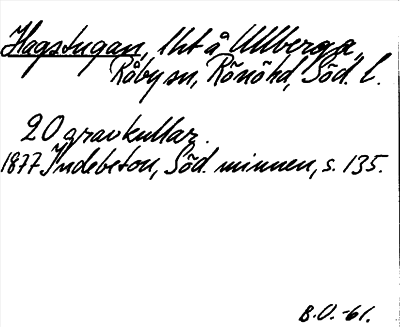 Hagstugan, lht å Ullberga,
Råby sn, Rönöhd, Söd. l.
20 gravkullar.
1877 Indebetou, Söd. minnen, s. 135.
B.O. -61.